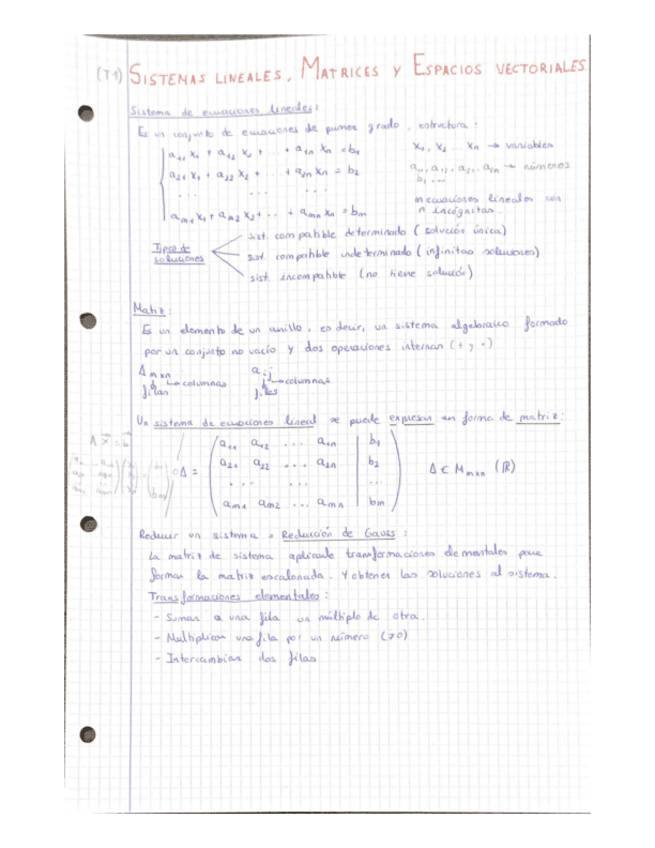 (T1) SISTEMAS LINEALES, MATRICES Y ESPACIOS VECTORIALES
Sistema de ecuaciones lineales:
Es un conjunto de ecuaciones de primer grado, estructura:
a₁₁ x₁ + a₁₂ x₂ + ... + a₁ₙ xₙ = b₁
x₁, x₂ ... xₙ → variables
a₂₁ x₁ + a₂₂ x₂ + ... + a₂ₙ xₙ = b₂
a₁₁, a₁₂, a₂₁, a₂ₙ → números
b₁ ...
... ... ...
m ecuaciones lineales con
n incógnitas.
aₘ₁ x₁ + aₘ₂ x₂ + ... + aₘₙ xₙ = bₘ
Tipos de
soluciones
sist. compatible determinado (solución única)
sist. compatible indeterminado (infinitas soluciones)
sist. incompatible (no tiene solución)
Matriz:
Es un elemento de un anillo, es decir, un sistema algebraico formado
por un conjunto no vacío y dos operaciones internas (+ y ·)
A m×n
→ columnas
filas
a i j
→ columnas
filas
Un sistema de ecuaciones lineal se puede expresar en forma de matriz:
A x = b
A =
a₁₁ a₁₂ ... a₁ₙ | b₁
a₂₁ a₂₂ ... a₂ₙ | b₂
... ... ...
aₘ₁ aₘ₂ ... aₘₙ | bₘ
A ∈ Mₘₓₙ (ℝ)
Reducir un sistema = Reducción de Gauss:
La matriz de sistema aplicarle transformaciones elementales para
formar la matriz escalonada. Y obtener las soluciones al sistema.
Transformaciones elementales:
- Sumar a una fila un múltiplo de otra.
- Multiplicar una fila por un número (≠0)
- Intercambiar dos filas